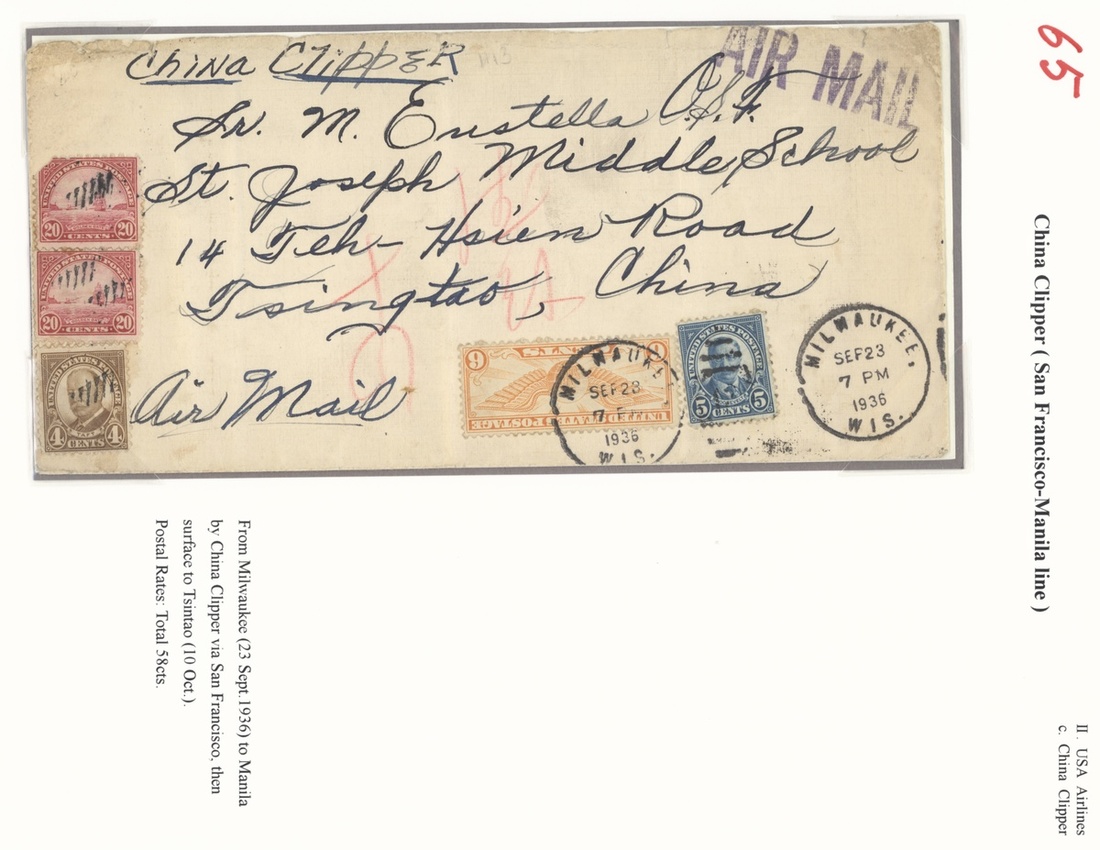 65
II. USA Airlines
c. China Clipper
China Clipper ( San Francisco-Manila line )
China Clipper
AIR MAIL
Sr. M. Eustella O.S.F.
St. Joseph Middle School
14 Teh-Hsien Road
Tsingtao, China
Air Mail
UNITED STATES POSTAGE
20 CENTS 20
UNITED STATES POSTAGE
20 CENTS 20
UNITED STATES POSTAGE
TAFT
4 CENTS 4
UNITED STATES POSTAGE
6 CENTS 6
UNITED STATES POSTAGE
5 CENTS 5
MILWAUKEE
SEP 23
7 P
1936
WIS.
MILWAUKEE,
SEP 23
7 PM
1936
WIS.
From Milwaukee (23 Sept.1936) to Manila
by China Clipper via San Francisco, then
surface to Tsintao (10 Oct.).
Postal Rates: Total 58cts.